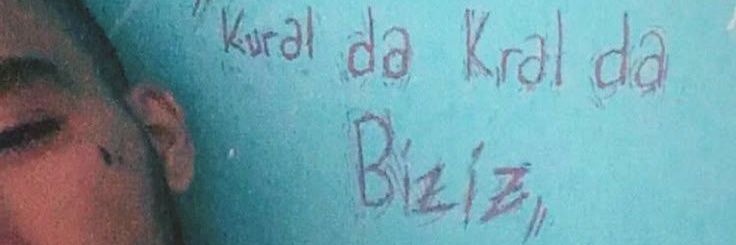 "Kural da Kral da
Biziz"